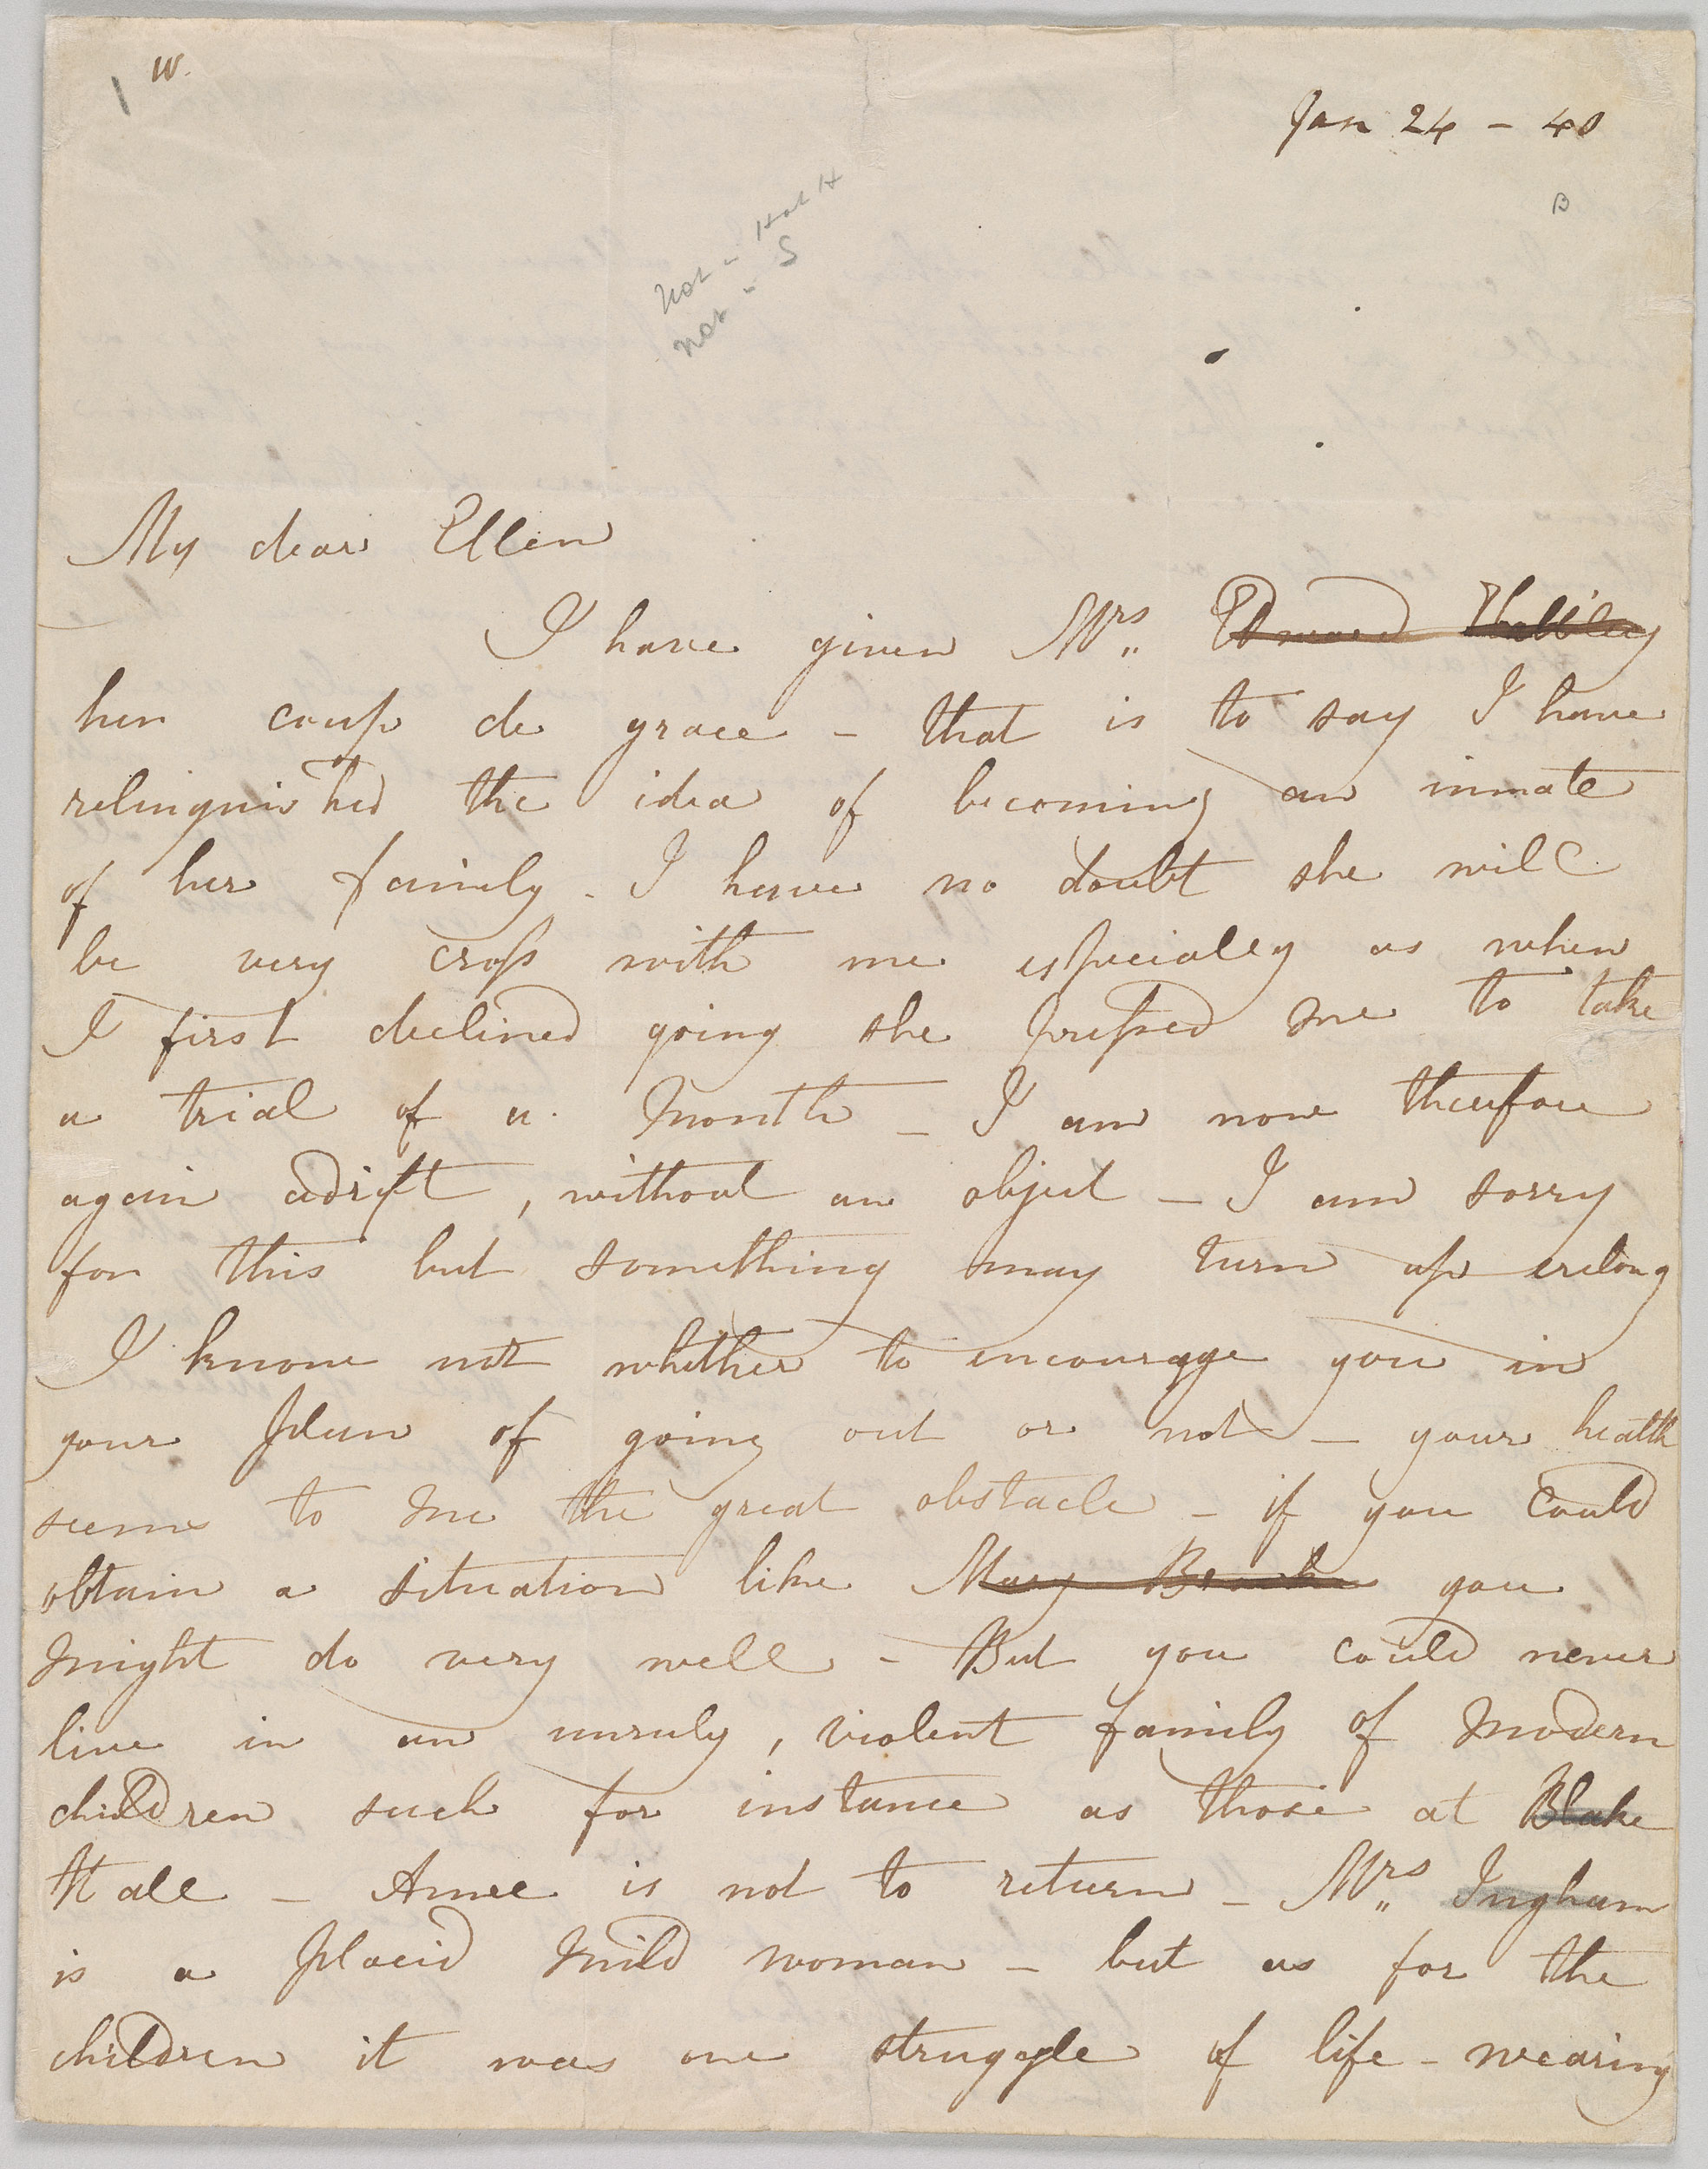 W.
Jan 24 - 40
B
Not - Hal H
Not - S
My dear Ellen
I have given Mrs. Edward
her coup de grace - that is to say I have
relinquished the idea of becoming an inmate
of her family - I have no doubt she will
be very cross with me especially as when
I first declined going she pressed me to take
a trial of a month - I am now therefore
again adrift, without an object - I am sorry
for this but something may turn up erelong
I know not whether to encourage you in
your plan of going out or not - your health
seems to me the great obstacle - if you could
obtain a situation like Mary Brooke you
might do very well - But you could never
live in an unruly, violent family of modern
children such for instance as those at Blake
Hall - Anne is not to return - Mrs. Ingham
is a placid mild woman - but as for the
children it was one struggle of life-wearing